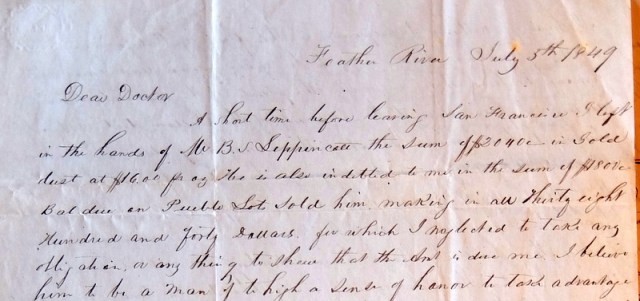 Feather River July 5th 1849
Dear Doctor
A short time before leaving San Francisco I left
in the hands of Mr B. S. Lippincott the sum of $2040 in Gold
dust at $16.00 pr oz He is also indetted to me in the sum of $1800
Bal due on Pueblo Lot sold him making in all Thirty eight
Hundred and forty Dollars. for which I neglected to take any
obligation, or any thing to shew that the Amt is due me. I believe
him to be a man of to high a sense of honor to take advantage